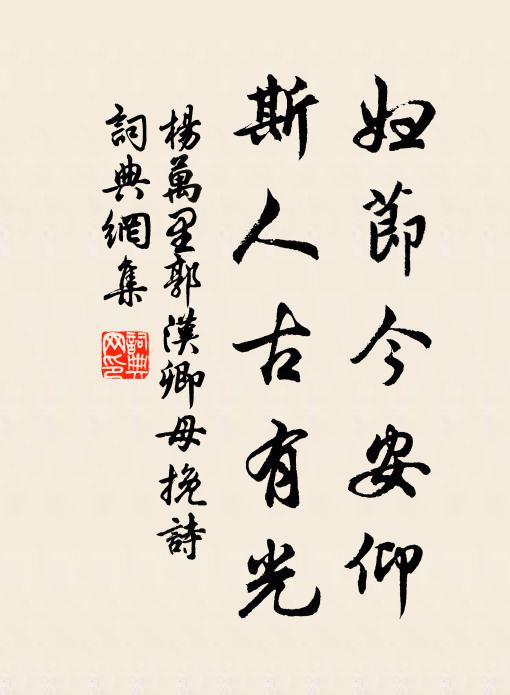 妇節今安仰
斯人古有光
楊萬里郭漢卿母挽詩
詞典網集
詞典网印